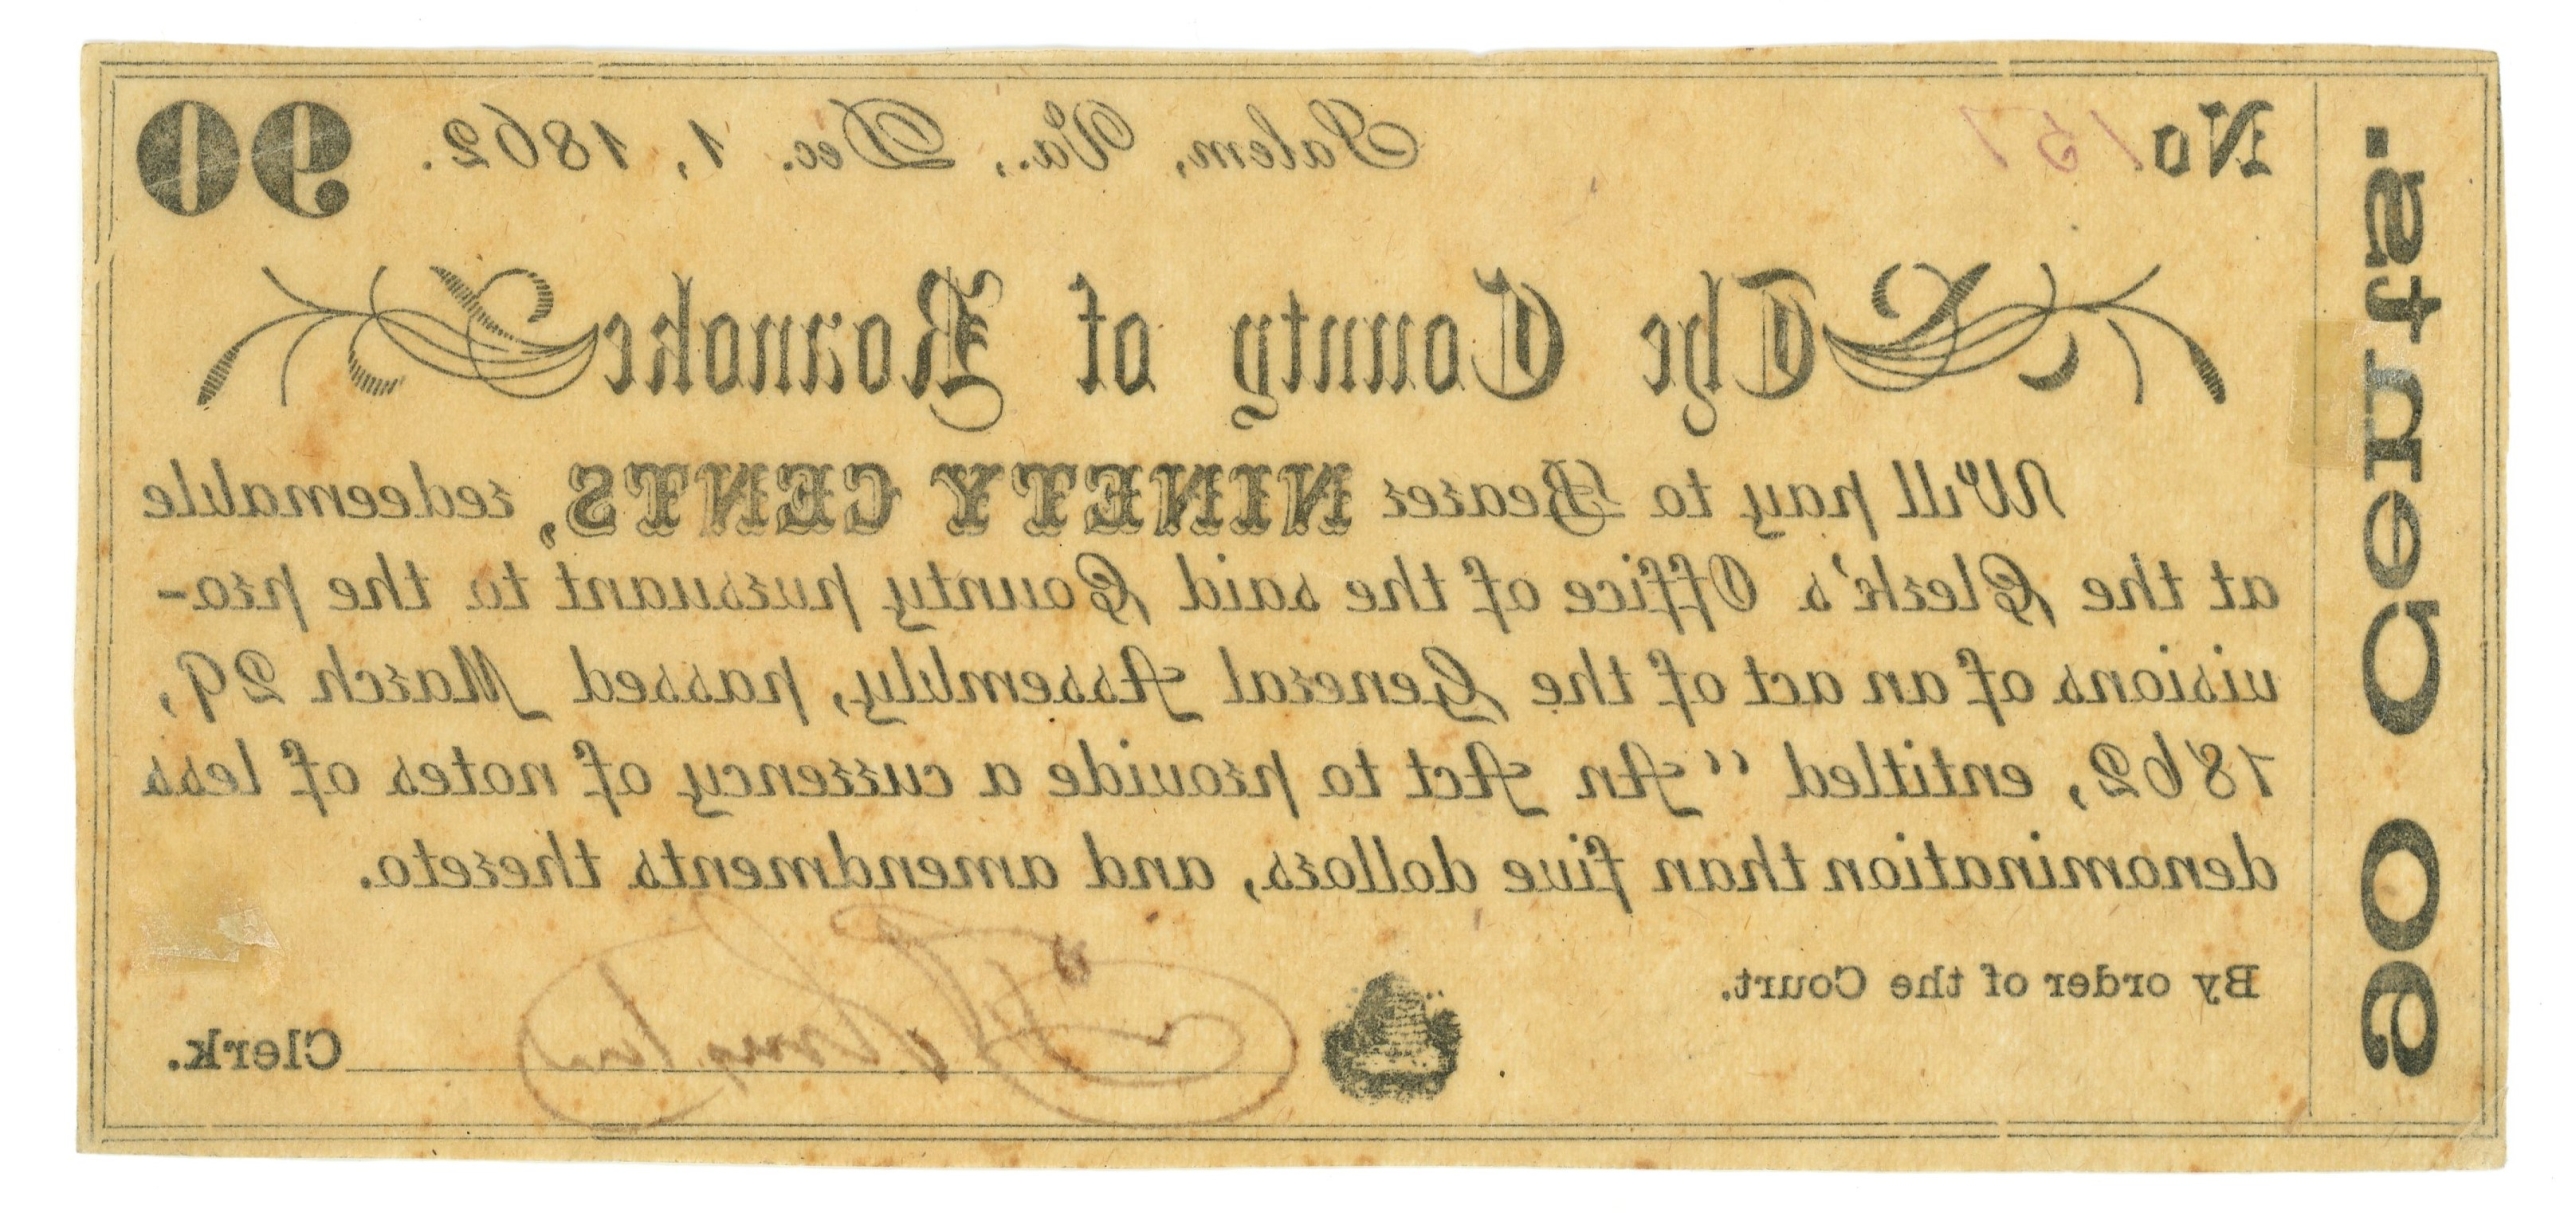 90 Cents.
No. 157 Salem, Va., Dec. 1, 1862. 90
The County of Roanoke
Will pay to Bearer NINETY CENTS, redeemable
at the Clerk's Office of the said County pursuant to the pro-
visions of an act of the General Assembly, passed March 29,
1862, entitled "An Act to provide a currency of notes of less
denomination than five dollors, and amendments thereto.
By order of the Court.
Clerk.